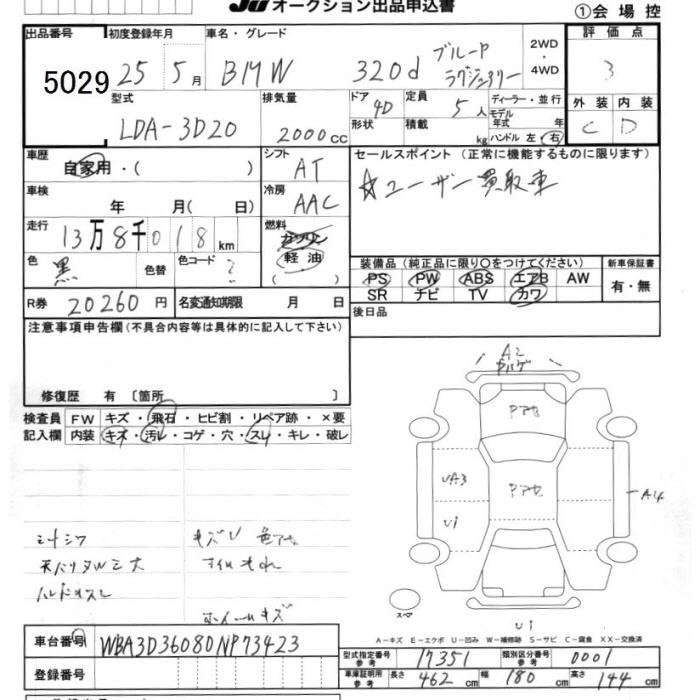 JU オークション出品申込書
①会場控
出品番号 初度登録年月 車名・グレード 2WD・4WD 評価点
5029 25年 5月 BMW 320d ブルーP ラグジュアリー 3
型式 排気量 ドア 定員 ディーラー・並行 外装 内装
LDA-3D20 2000cc 4D 5人 モデル年式 年 C D
形状 積載 kg ハンドル 左・右
車歴 シフト セールスポイント (正常に機能するものに限ります)
自家用・( ) AT ☆ユーザー買取車
車検 冷房
年 月( 日) AAC
走行 燃料
13万8千018km ガソリン 軽油 ( )
色 色替 色コード 装備品 (純正品に限り○をつけてください) 新車保証書
黒 ? PS PW ABS エアB AW 有・無
SR ナビ TV カワ
R券 20260円 名変通知期限 月 日 後日品
注意事項申告欄 (不具合内容等は具体的に記入して下さい)
修復歴 有 〔箇所 〕
検査員 FW キズ・飛石・ヒビ割・リペア跡・×要
記入欄 内装 キズ・汚レ・コゲ・穴・スレ・キレ・破レ
A2
Pアセ
UA3
Pアセ
A4
U1
シートシワ キズU 色アセ
ハンドルスレ
ホイールキズ
スペア
U1
A-キズ E-エクボ U-凹み W-補修跡 S-サビ C-腐食 XX-交換済
車台番号 WBA3D36080NP73423
登録番号
型式指定番号 参考 17351 類別区分番号 参考 0001
車庫証明用 参考 長さ 462cm 幅 180cm 高さ 144cm